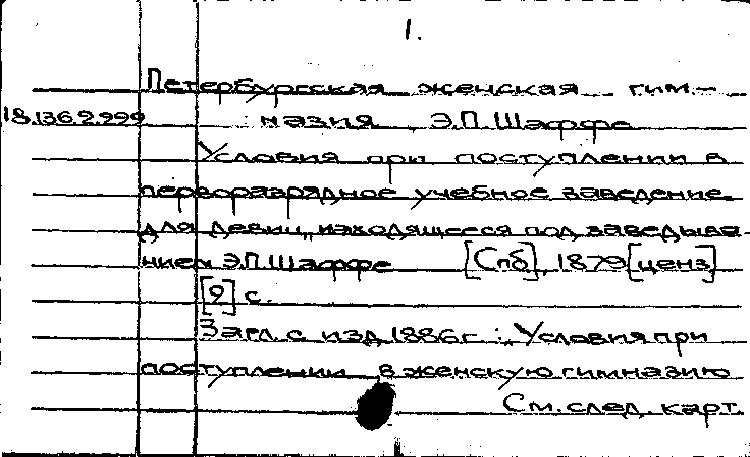 1.
Петербургская женская гим-
18.136.2.999 назия Э.П.Шаффе
Условия при поступлении в
перворазрядное учебное заведение
для девиц, находящееся под заведыва-
нием Э.П.Шаффе [Спб], 1879 [ценз]
[2] с.
Загл. с изд. 1886 г.: "Условия при
поступлении в женскую гимназию
См. след. карт.